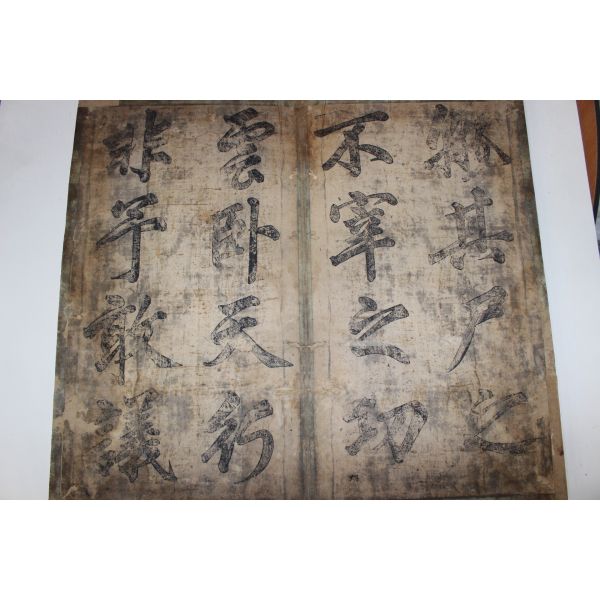 孰其尸之
不宰之功
雲卧天行
非予敢議